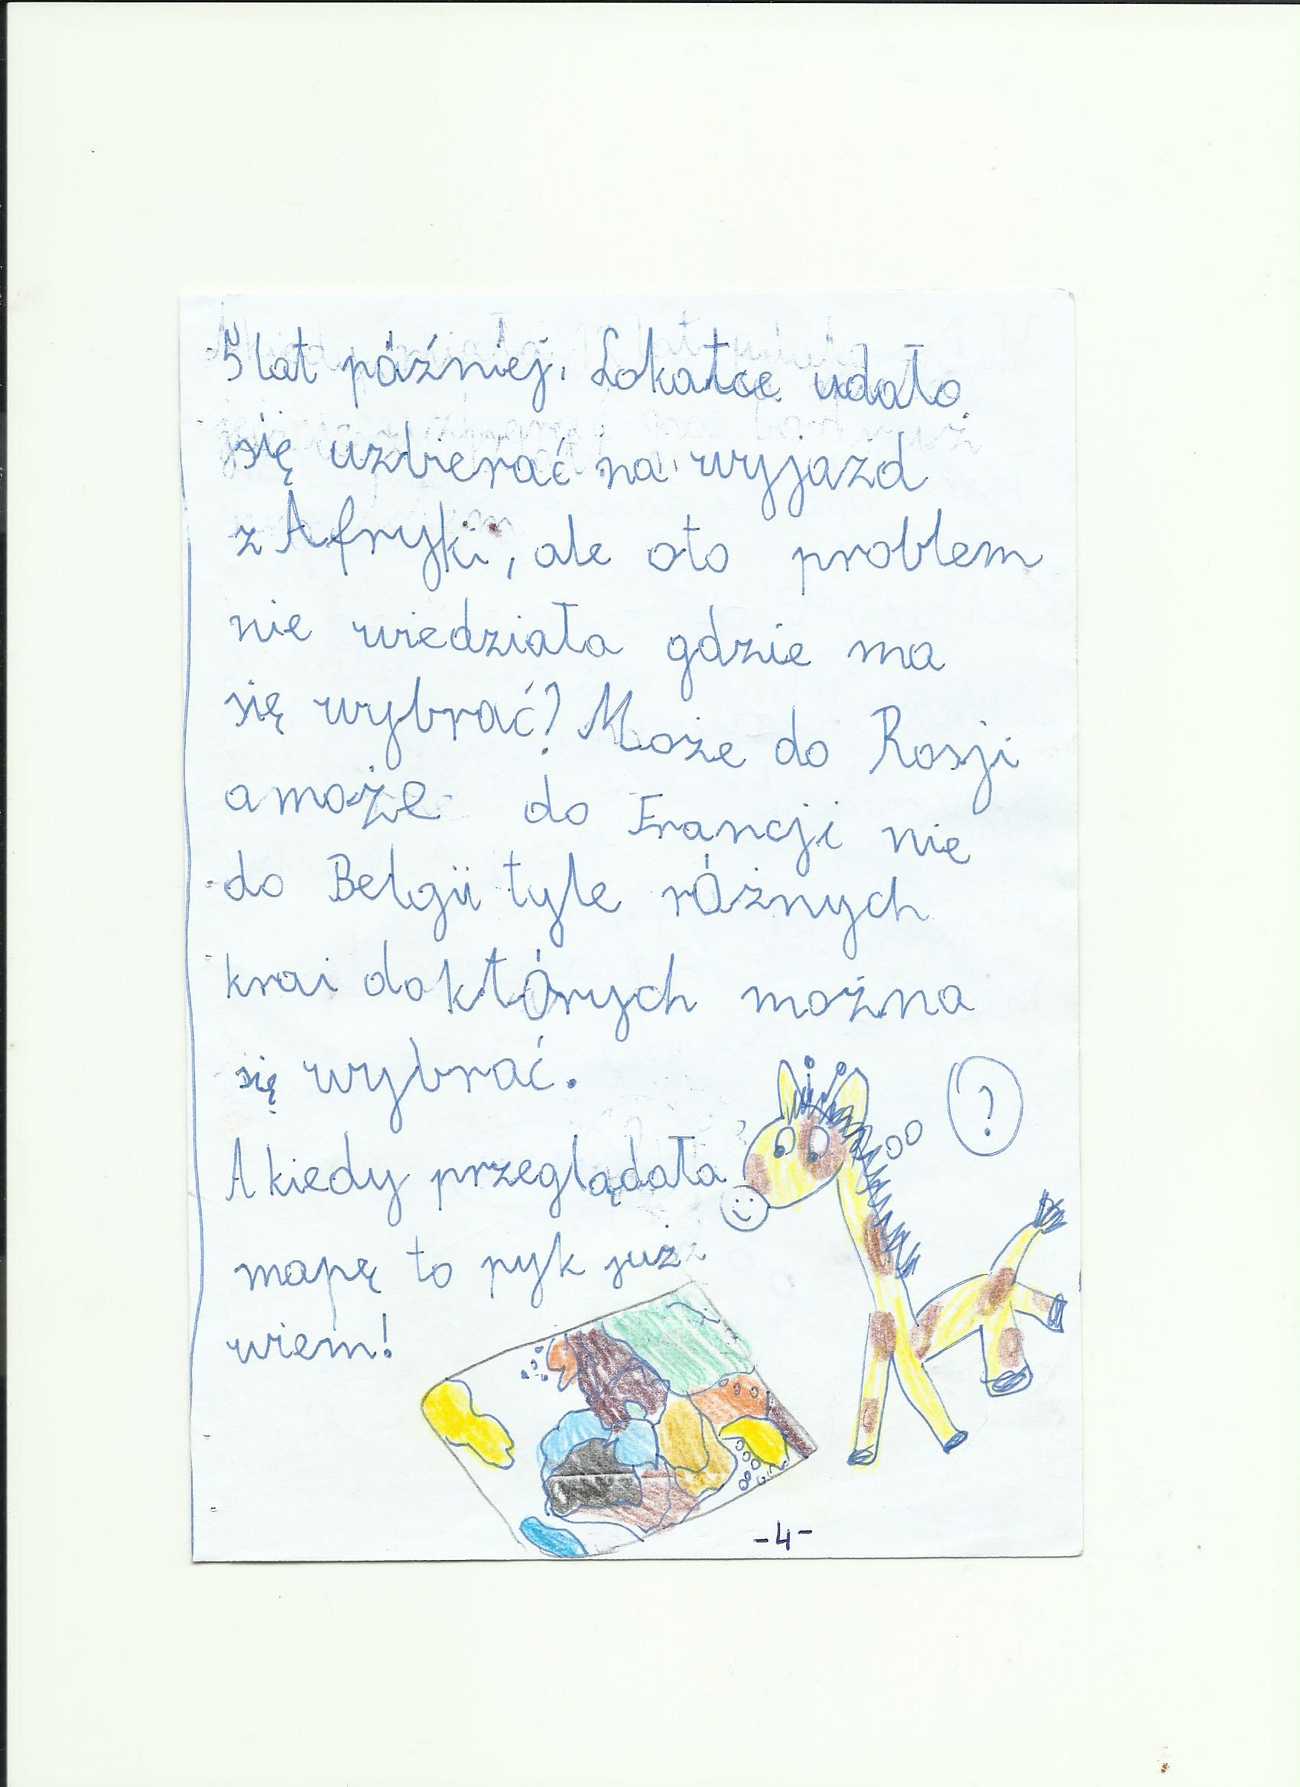 5 lat później. Lokatce udało
się uzbierać na wyjazd
z Afryki, ale oto problem
nie wiedziała gdzie ma
się wybrać? Może do Rosji
a może do Francji nie
do Belgii tyle różnych
krai do których można
się wybrać.
A kiedy przeglądała
mapę to pyk już
wiem!
?
-4-